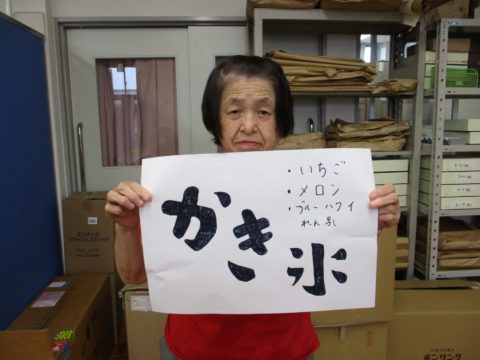 ・いちご
・メロン
・ブルーハワイ
れん乳
かき氷